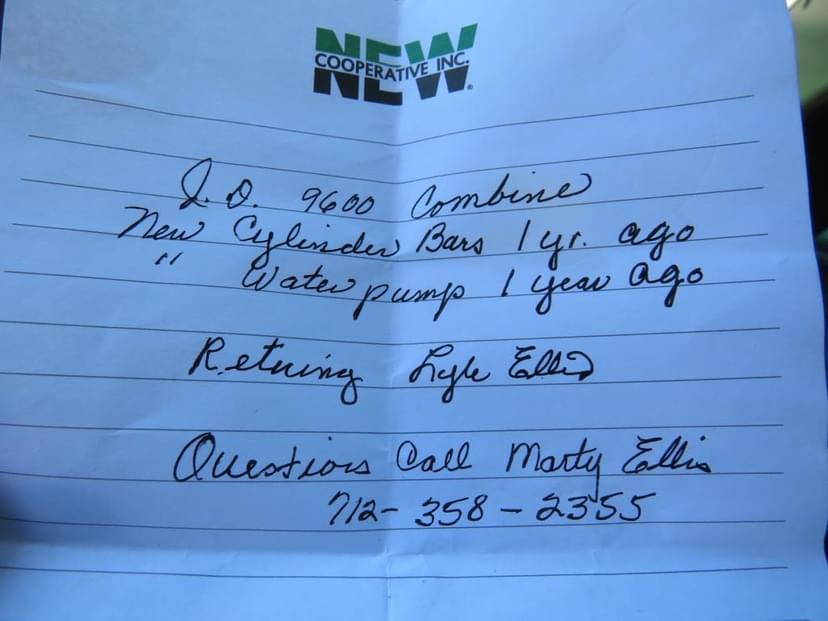 NEW
COOPERATIVE INC.
J.D. 9600 Combine
New Cylinder Bars 1 yr. ago
" Water pump 1 year ago
Retiring Lyle Ellis
Questions Call Marty Ellis
712-358-2355